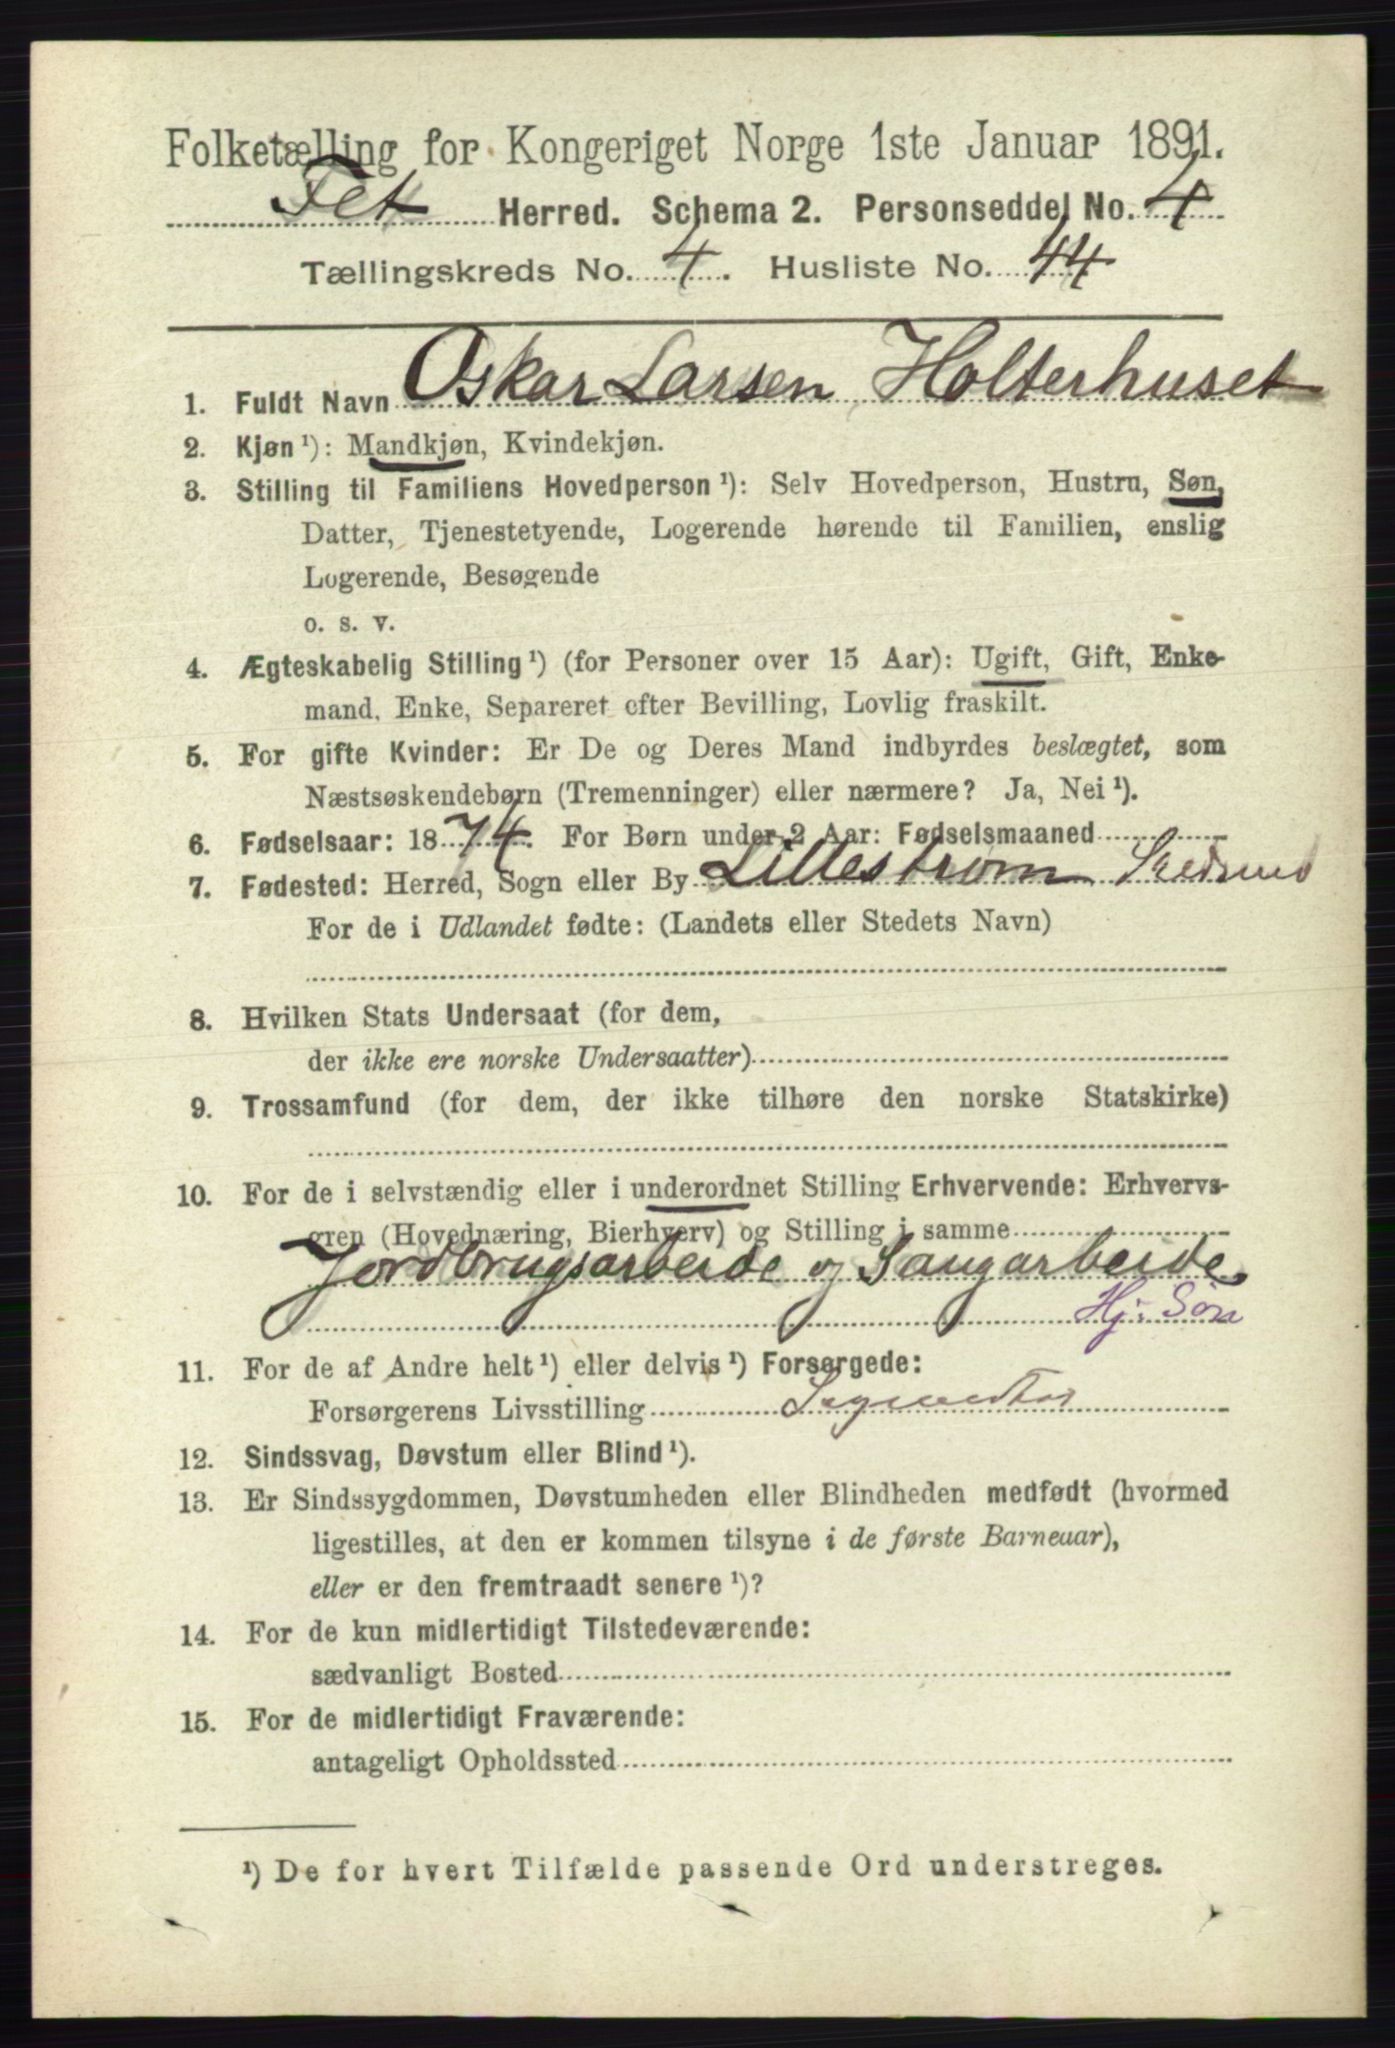 Folketælling for Kongeriget Norge 1ste Januar 1891.
Fet Herred. Schema 2. Personseddel No. 4
Tællingskreds No. 4. Husliste No. 44
1. Fuldt Navn Oskar Larsen, Holterhuset
2. Kjøn ¹): Mandkjøn, Kvindekjøn.
3. Stilling til Familiens Hovedperson ¹): Selv Hovedperson, Hustru, Søn,
Datter, Tjenestetyende, Logerende hørende til Familien, enslig
Logerende, Besøgende
o. s. v.
4. Ægteskabelig Stilling ¹) (for Personer over 15 Aar): Ugift, Gift, Enke-
mand, Enke, Separeret efter Bevilling, Lovlig fraskilt.
5. For gifte Kvinder: Er De og Deres Mand indbyrdes beslægtet, som
Næstsøskendebørn (Tremenninger) eller nærmere? Ja, Nei ¹).
6. Fødselsaar: 1874. For Børn under 2 Aar: Fødselsmaaned
7. Fødested: Herred, Sogn eller By Lillestrøm
For de i Udlandet fødte: (Landets eller Stedets Navn)
8. Hvilken Stats Undersaat (for dem,
der ikke ere norske Undersaatter)
9. Trossamfund (for dem, der ikke tilhøre den norske Statskirke)
10. For de i selvstændig eller i underordnet Stilling Erhvervende: Erhvervs-
gren (Hovednæring, Bierhverv) og Stilling i samme
Jordbrugsarbeide og Saugarbeide
Hj. Søn
11. For de af Andre helt ¹) eller delvis ¹) Forsørgede:
Forsørgerens Livsstilling
12. Sindssvag, Døvstum eller Blind ¹).
13. Er Sindssygdommen, Døvstumheden eller Blindheden medfødt (hvormed
ligestilles, at den er kommen tilsyne i de første Barneaar),
eller er den fremtraadt senere ¹)?
14. For de kun midlertidigt Tilstedeværende:
sædvanligt Bosted
15. For de midlertidigt Fraværende:
antageligt Opholdssted
¹) De for hvert Tilfælde passende Ord understreges.